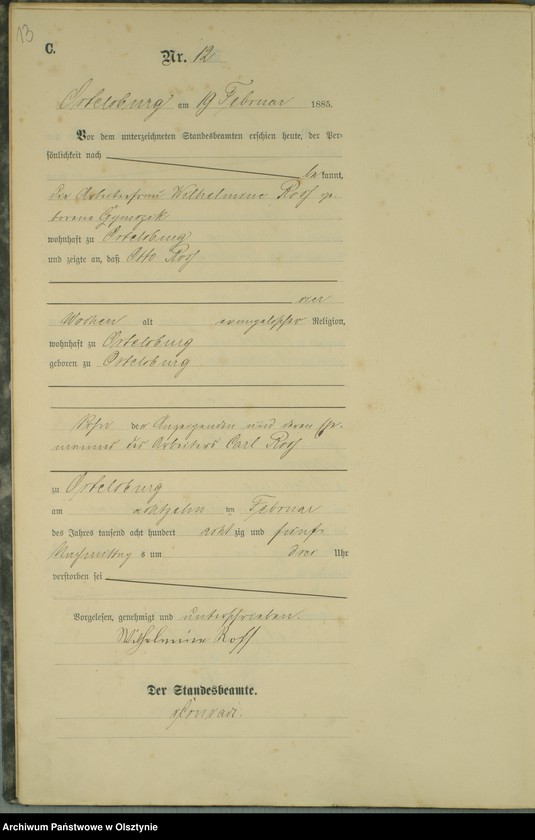 13
C.
Nr. 12
Ortelsburg am 19 Februar 1885.
Vor dem unterzeichneten Standesbeamten erschien heute, der Per-
sönlichkeit nach
bekannt,
die Arbeiterfrau Wilhelmine Roß ge-
borene
wohnhaft zu Ortelsburg
und zeigte an, daß Otto Roß
vier
Wochen alt evangelischer Religion,
wohnhaft zu Ortelsburg
geboren zu Ortelsburg
Sohn der Anzeigenden und deren Ehe-
mannes des Arbeiters Carl Roß
zu Ortelsburg
am achtzehn ten Februar
des Jahres tausend acht hundert acht zig und fünf
Nachmittags um drei Uhr
verstorben sei
Vorgelesen, genehmigt und unterschrieben.
Wilhelmine Roß
Der Standesbeamte.
Archiwum Państwowe w Olsztynie